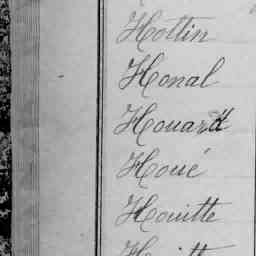 Hottin
Honal
Houard
Houé
Houitte